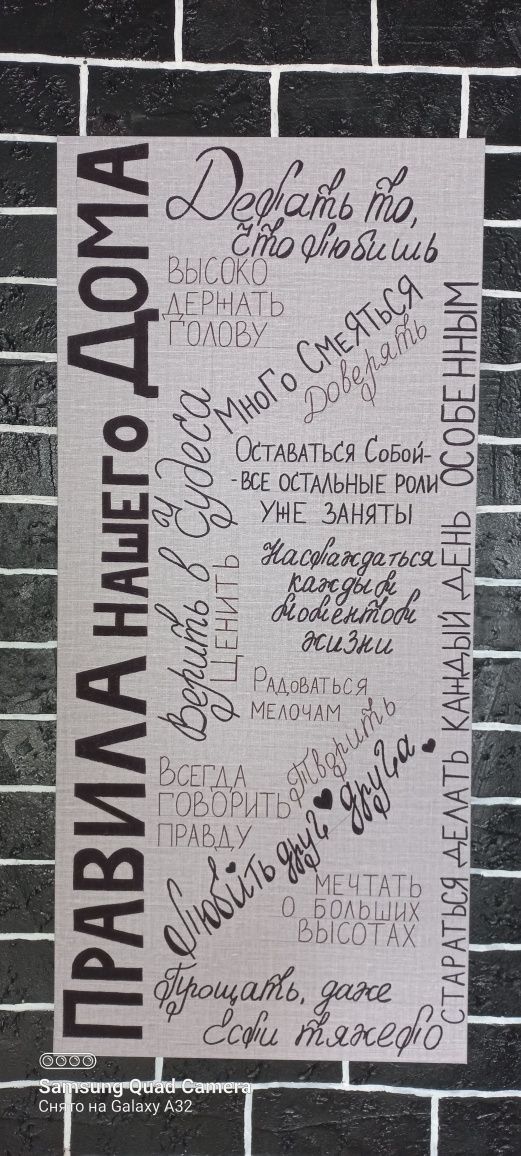 ПРАВИЛА НАШЕГО ДОМА
Делать то,
что любишь
ВЫСОКО
ДЕРЖАТЬ
ГОЛОВУ
МНОГО СМЕЯТЬСЯ
Доверять
Верить в Чудеса
ОСТАВАТЬСЯ СОБОЙ-
-ВСЕ ОСТАЛЬНЫЕ РОЛИ
УЖЕ ЗАНЯТЫ
ЦЕНИТЬ
Наслаждаться
каждым
моментом
жизни
РАДОВАТЬСЯ
МЕЛОЧАМ
Творить
ВСЕГДА
ГОВОРИТЬ
ПРАВДУ
Любить друг друга
МЕЧТАТЬ
О БОЛЬШИХ
ВЫСОТАХ
Прощать, даже
Если тяжело
СТАРАТЬСЯ ДЕЛАТЬ КАЖДЫЙ ДЕНЬ ОСОБЕННЫМ
Samsung Quad Camera
Снято на Galaxy A32